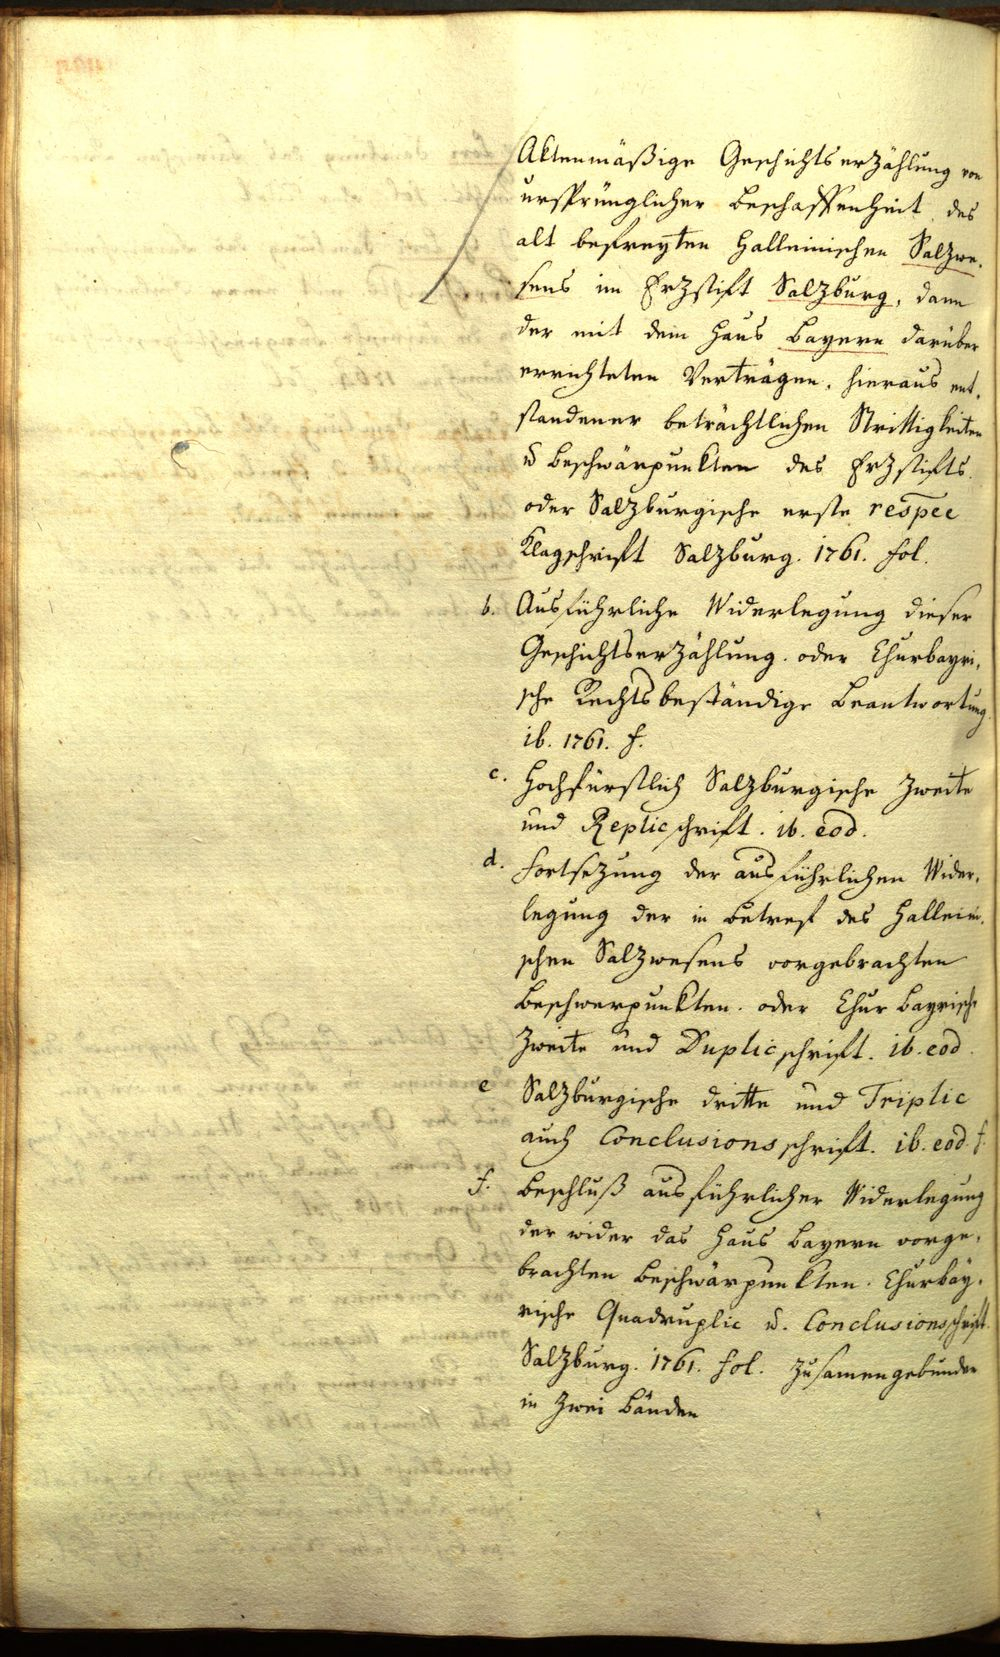 Aktenmäßige Geschichtserzählung von
ursprünglicher Beschaffenheit des
alt befreyten Halleinischen Salzwe,
sens im Erzstift Salzburg, dann
der mit dem Haus Bayern darüber
errichteten Verträgen, hieraus ent,
standener beträchtlichen Strittigkeiten
u Beschwärpunkten des Erzstifts.
oder Salzburgische erste respec
Klagschrift Salzburg. 1761. fol.
b. Ausführliche Widerlegung dieser
Geschichtserzählung. oder Churbayri,
sche Rechtsbeständige Beantwortung.
ib. 1761. f.
c. Hochfürstlich Salzburgische zweite
und Replicschrift. ib. eod.
d. Fortsezung der ausführlichen Wider,
legung der in Betref des Halleini,
schen Salzwesens vorgebrachten
Beschwerpunkten. oder Churbayrische
zweite und Duplicschrift. ib. eod.
e Salzburgische dritte und Triplic
auch Conclusionsschrift. ib. eod. f.
f. Beschluß ausführlicher Widerlegung
der wider das Haus Bayern vorge,
brachten Beschwärpunkten. Churbay,
rische Quadruplic u. Conclusionsschrift.
Salzburg. 1761. fol. zusamengebunden
in zwei Bänden